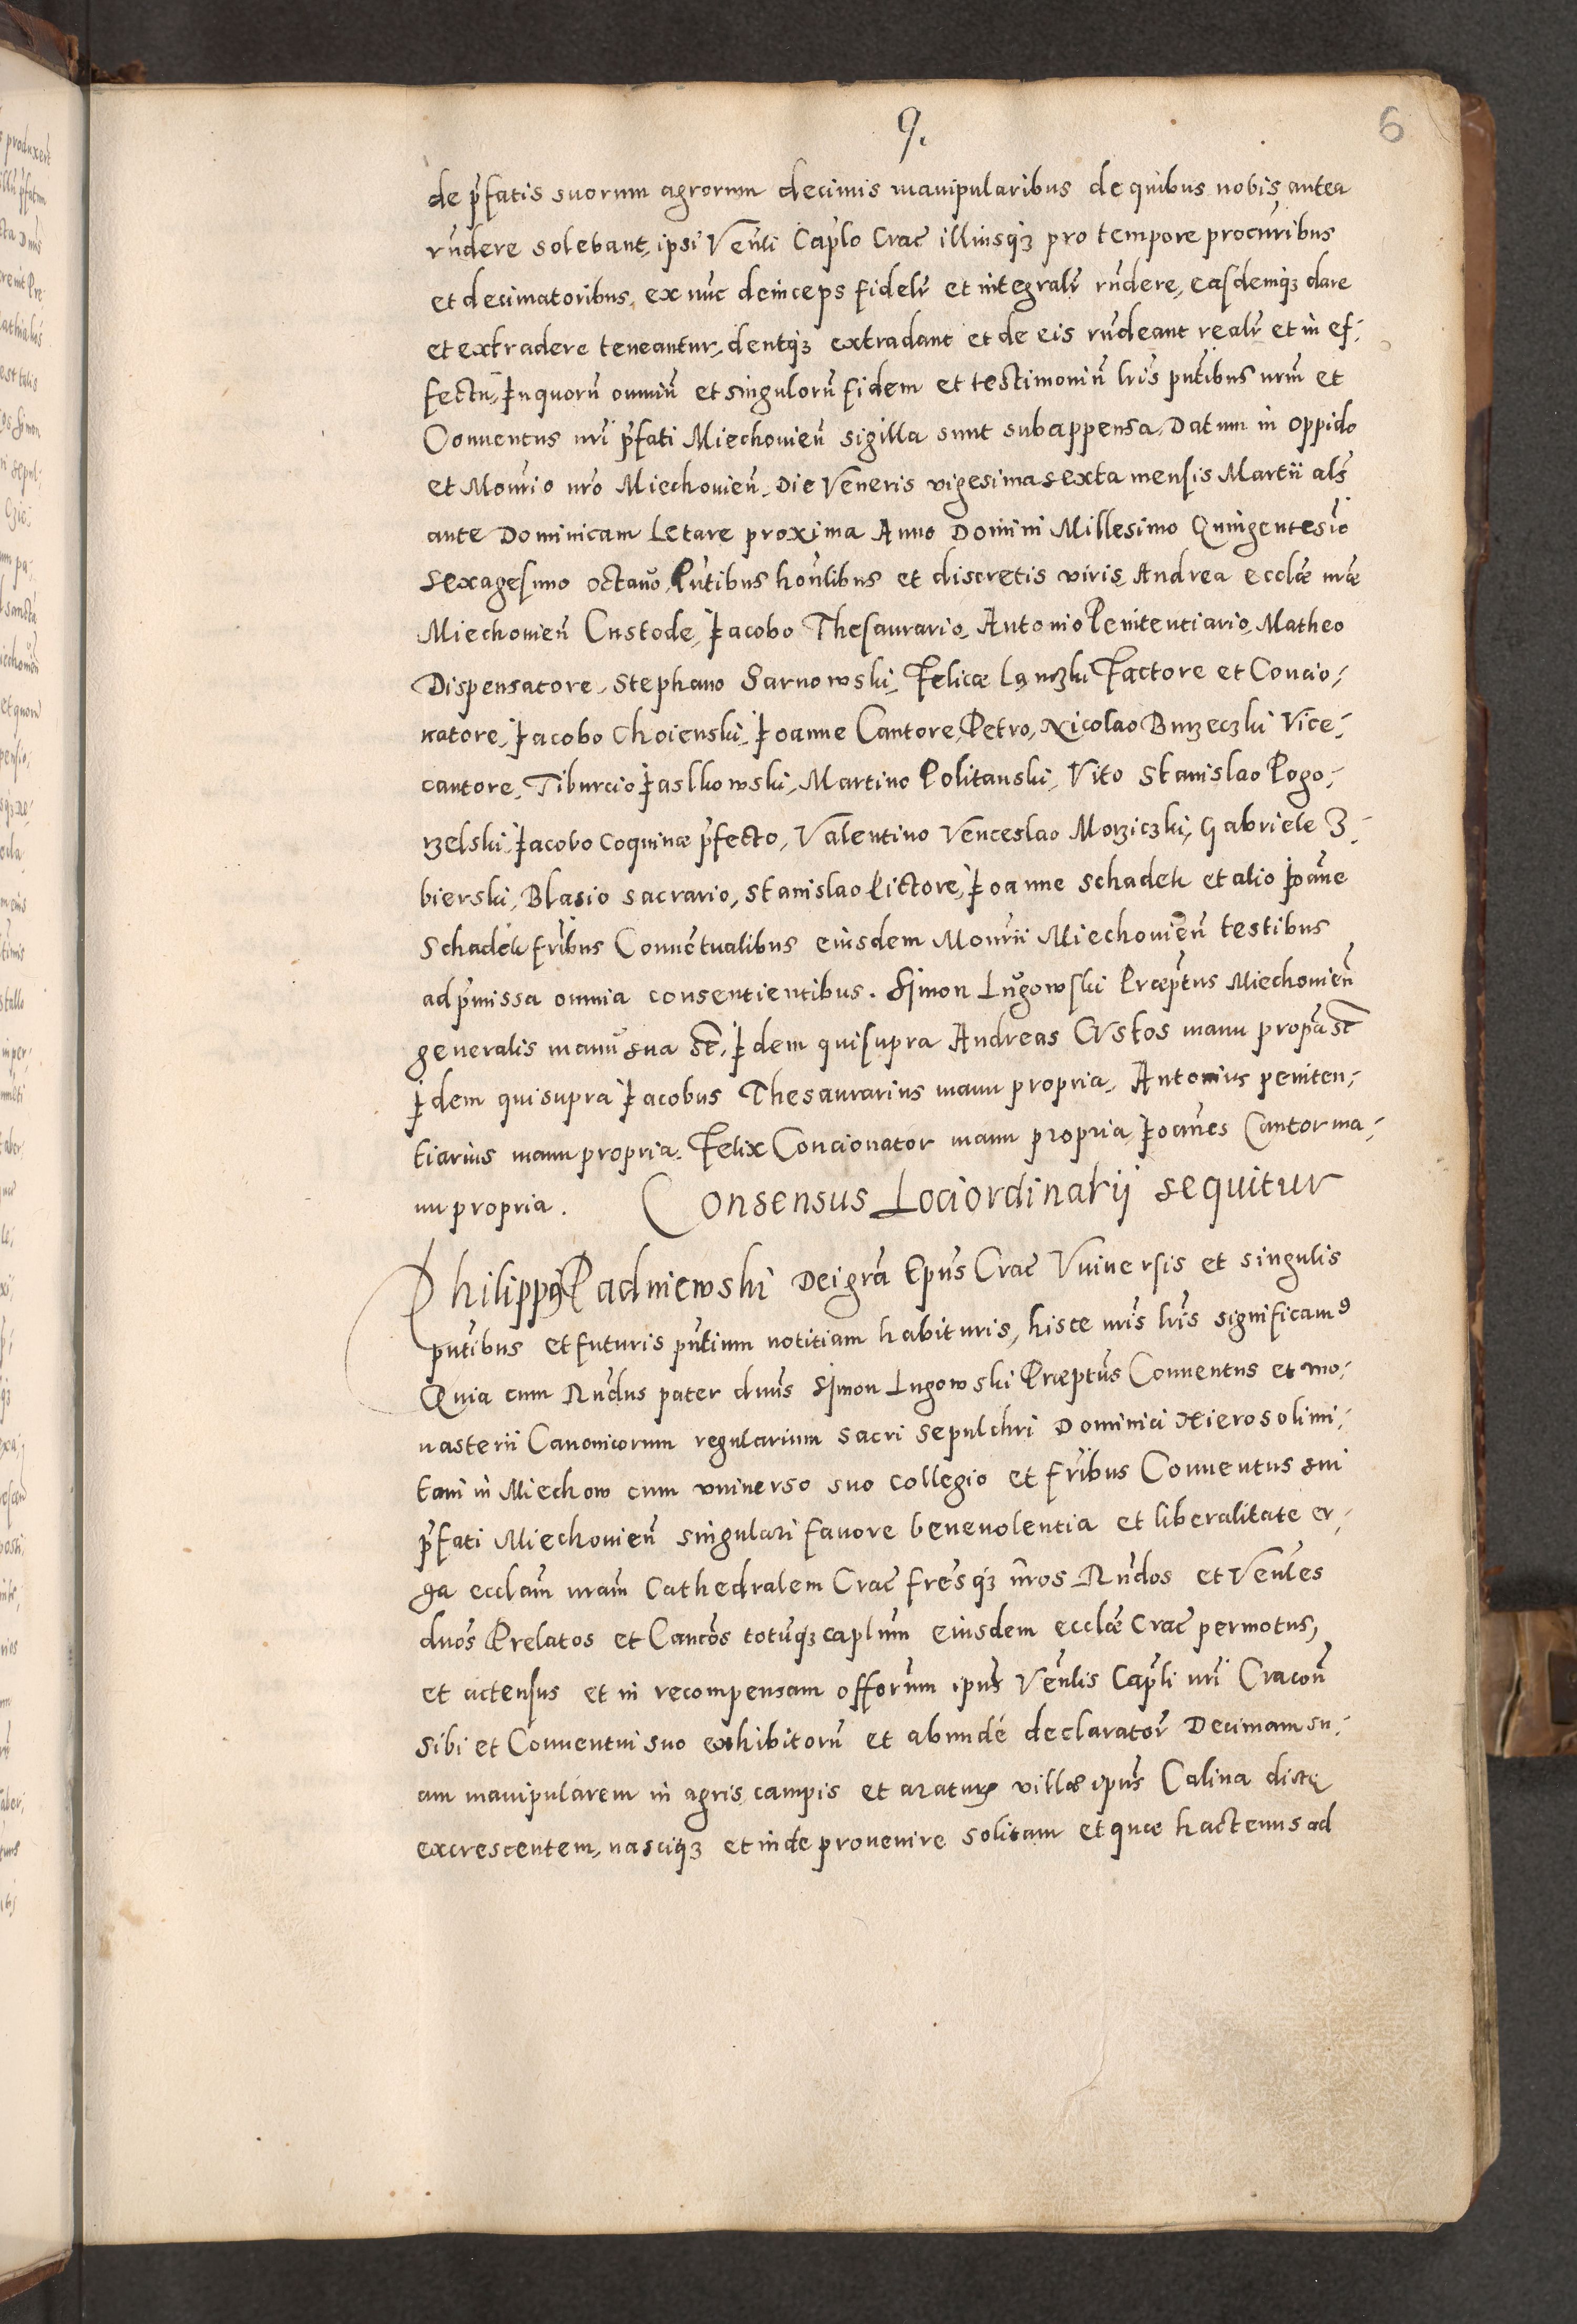 9.
6
de p̃fatis suorum agrorum decimis manipularibus de quibus nobis antea
rñdere solebant, ipsi Veñli Cap̃lo Crac̃ illiusq̃ꝫ pro tempore procuribus
et decimatoribus, ex nũc deinceps fidelr̃ et integralr̃ rñdere, easdemq̃ꝫ dare
et extradere teneantur, dentq̃ꝫ extradant et de eis rñdeant realr̃ et in ef-
fectu, In quorũ omniũ et singulorũ fidem et testimoniũ lr̃is pñtibus nrm̃ et
Conuentus nrĩ p̃fati Miechouieñ sigilla sunt subappensa. Datum in oppido
et Monr̃io nrõ Miechouieñ. Die Veneris vigesima sexta mensis Martii als̃
ante Dominicam Letare proxima Anno Domini Millesimo Quingentesĩo
Sexagesimo octauo, Pñtibus hoñlibus et discretis viris Andrea ecclæ̃ nræ̃
Miechouieñ Custode, Iacobo Thesaurario, Antonio Penitentiario, Matheo
Dispensatore, Stephano Sarnowski, Felicæ Lanczki Factore et Concio-
natore, Iacobo Choienski, Ioanne Cantore, Petro, Nicolao Burzeczki Vice-
cantore, Tiburcio Jaslkowski, Martino Politanski, Vito Stanislao Pogo-
rzelski, Iacobo Coquinæ p̃fecto, Valentino Venceslao Morziczki, Gabriele Z-
bierski, Blasio sacrario, Stanislao Pictore, Ioanne Schadek et alio Ioañe
Schadek fribus̃ Conuẽtualibus eiusdem Monr̃ii Miechouieñ testibus
ad p̃missa omnia consentientibus. Simon Lugowski Præptus̃ Miechouieñ
generalis manu sua sc̃t, Idem qui supra Andreas Custos manu propã sc̃t
Idem qui supra Iacobus Thesaurarius manu propria, Antonius peniten-
tiarius manu propria. Felix Concionator manu propria, Ioañes Cantor ma-
nu propria. Consensus Loci ordinarij sequitur
Philippꝰ Padniewski Dei grã Epũs Crac̃ Vniuersis et singulis
pñtibus et futuris pñtium notitiam habituris, hisce nrĩs lr̃is significamꝰ
Quia cum Rñdus pater dnũs Simon Lugowski Præptũs Conuentus et mo-
nasterii Canonicorum regularium sacri Sepulchri Dominici Hierosolimi-
tani in Miechow cum vniuerso suo collegio et fr̃ibus Conuentus sui
p̃fati Miechouieñ singulari fauore beneuolentia et liberalitate er-
ga ecclam̃ nram̃ Cathedralem Crac̃ fres̃q̃ꝫ nr̃os Rñdos et Veñles
dnõs Prelatos et Cancõs totũq̃ꝫ caplum̃ eiusdem ecclæ̃ Crac̃ permotus,
et actensus et in recompensam offorum̃ ipũs Veñlis Cap̃li nrĩ Cracoñ
sibi et Conuentui suo exhibitorũ et abundé declarator̃ Decimam su-
am manipularem in agris campis et araturꝭ villæ ipũs Calina dictę
excrescentem, nasciq̃ꝫ et inde prouenire solitam et quæ hactenus ad